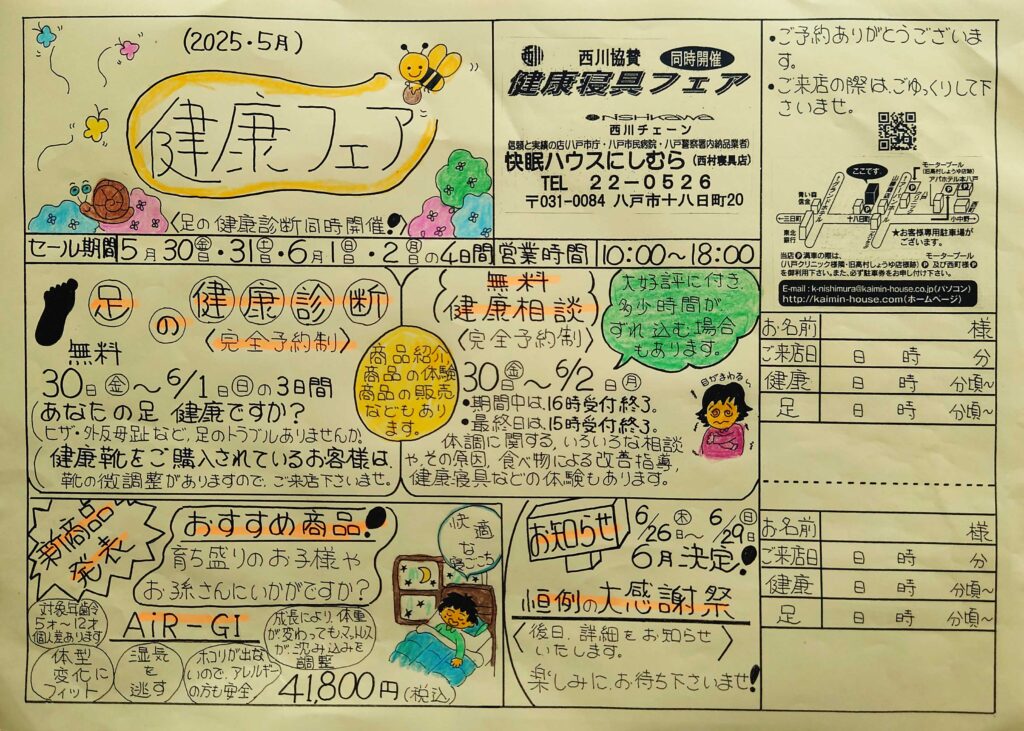 (2025・5月)
健康フェア
〈足の健康診断同時開催!〉
西川協賛 同時開催
健康寝具フェア
nishikawa
西川チェーン
信頼と実績の店(八戸市庁・八戸市民病院・八戸警察署内納品業者)
快眠ハウスにしむら(西村寝具店)
TEL 22-0526
〒031-0084 八戸市十八日町20
・ご予約ありがとうございま
す。
・ご来店の際は、ごゆっくりして下
さいませ。
モータープール
(旧高村しょうゆ店跡)
アパホテル本八戸
ここです。
青い森
信金
←三日町
十八日町
小中野→
東北
銀行
★お客様専用駐車場が
ございます。
当店Ⓟ満車の際は、 モータープール
(八戸クリニック様隣・旧高村しょうゆ店様跡)Ⓟ 及び西町様Ⓟ
を御利用下さい。また、必ず駐車券をお申し付け下さい。
E-mail : k-nishimura@kaimin-house.co.jp(パソコン)
http://kaimin-house.com(ホームページ)
セール期間 5月30㊎・31㊏・6月1㊐・2㊊の4日間 営業時間 10:00〜18:00
足の健康診断
〈完全予約制〉
無料
30日㊎〜6/1日㊐の3日間
あなたの足 健康ですか?
ヒザ・外反母趾など、足のトラブルありませんか。
健康靴をご購入されているお客様は、
靴の微調整がありますので、ご来店下さいませ。
商品紹介
商品の体験
商品の販売
などもあり
ます。
無料
健康相談
〈完全予約制〉
30日㊎〜6/2日㊊
・期間中は、16時受付終了。
・最終日は、15時受付終了。
体調に関する、いろいろな相談
や、その原因、食べ物による改善指導、
健康寝具などの体験もあります。
大好評に付き、
多少時間が、
ずれ込む場合
もあります。
目がまわる〜
お名前 様
ご来店日 日 時 分
健康 日 時 分頃〜
足 日 時 分頃〜
お名前 様
ご来店日 日 時 分
健康 日 時 分頃〜
足 日 時 分頃〜
新商品
発表
おすすめ商品!
育ち盛りのお子様や
お孫さんにいかがですか?
対象年齢
5才〜12才
個人差あります
AiR-GI
成長により、体重
が変わってもマットレス
が、沈み込みを
調整
体型
変化に
フィット
湿気
を
逃す
ホコリが出な
いので、アレルギー
の方も安全。
41,800円(税込)
快適
な
寝ごこち
お知らせ
6/26㊍〜6/29㊐
6月決定!
恒例の大感謝祭
後日、詳細をお知らせ
いたします。
楽しみに、お待ち下さいませ!